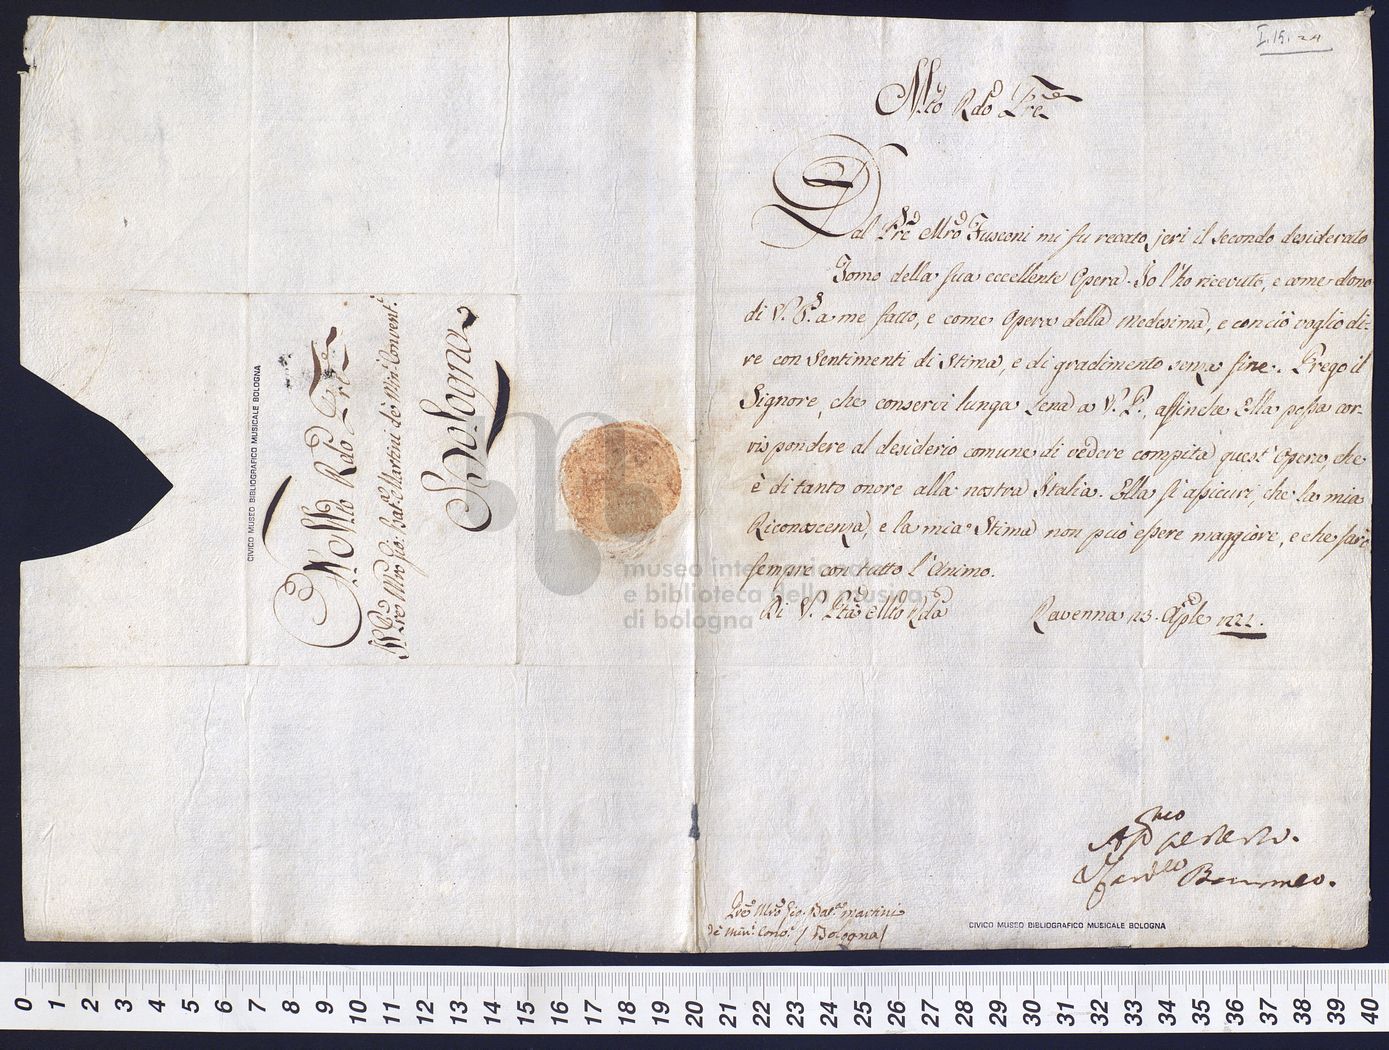 I.15.24
Mto Rdo Pre
Dal Pre Mro Fusconi mi fu recato jeri il secondo desiderato
Tomo della sua eccellente Opera. Io l'ho ricevuto, e come dono
di V. P. a me fatto, e come Opera della medesima, e con ciò voglio di-
re con sentimenti di Stima, e di gradimento senza fine. Prego il
Signore, che conservi lunga età a V. P., affinche Ella possa cor-
rispondere al desiderio comune di vedere compita quest'Opera, che
è di tanto onore alla nostra Italia. Ella si assicuri, che la mia
Riconoscenza, e la mia Stima non può essere maggiore, e che sarò
sempre con tutto l'Animo.
Di V. Pta Mto Rda
Ravenna 23. Aprle
Pre Mro Gio: Batta Martini
de Min: Conv: / Bologna /
CIVICO MUSEO BIBLIOGRAFICO MUSICALE BOLOGNA
Al Mto Rdo Pre
Il Pre Mro Gio: Batta Martini de Min: Convent:
Bologna
CIVICO MUSEO BIBLIOGRAFICO MUSICALE BOLOGNA
museo internazionale
e biblioteca della musica
di bologna
0 1 2 3 4 5 6 7 8 9 10 11 12 13 14 15 16 17 18 19 20 21 22 23 24 25 26 27 28 29 30 31 32 33 34 35 36 37 38 39 40